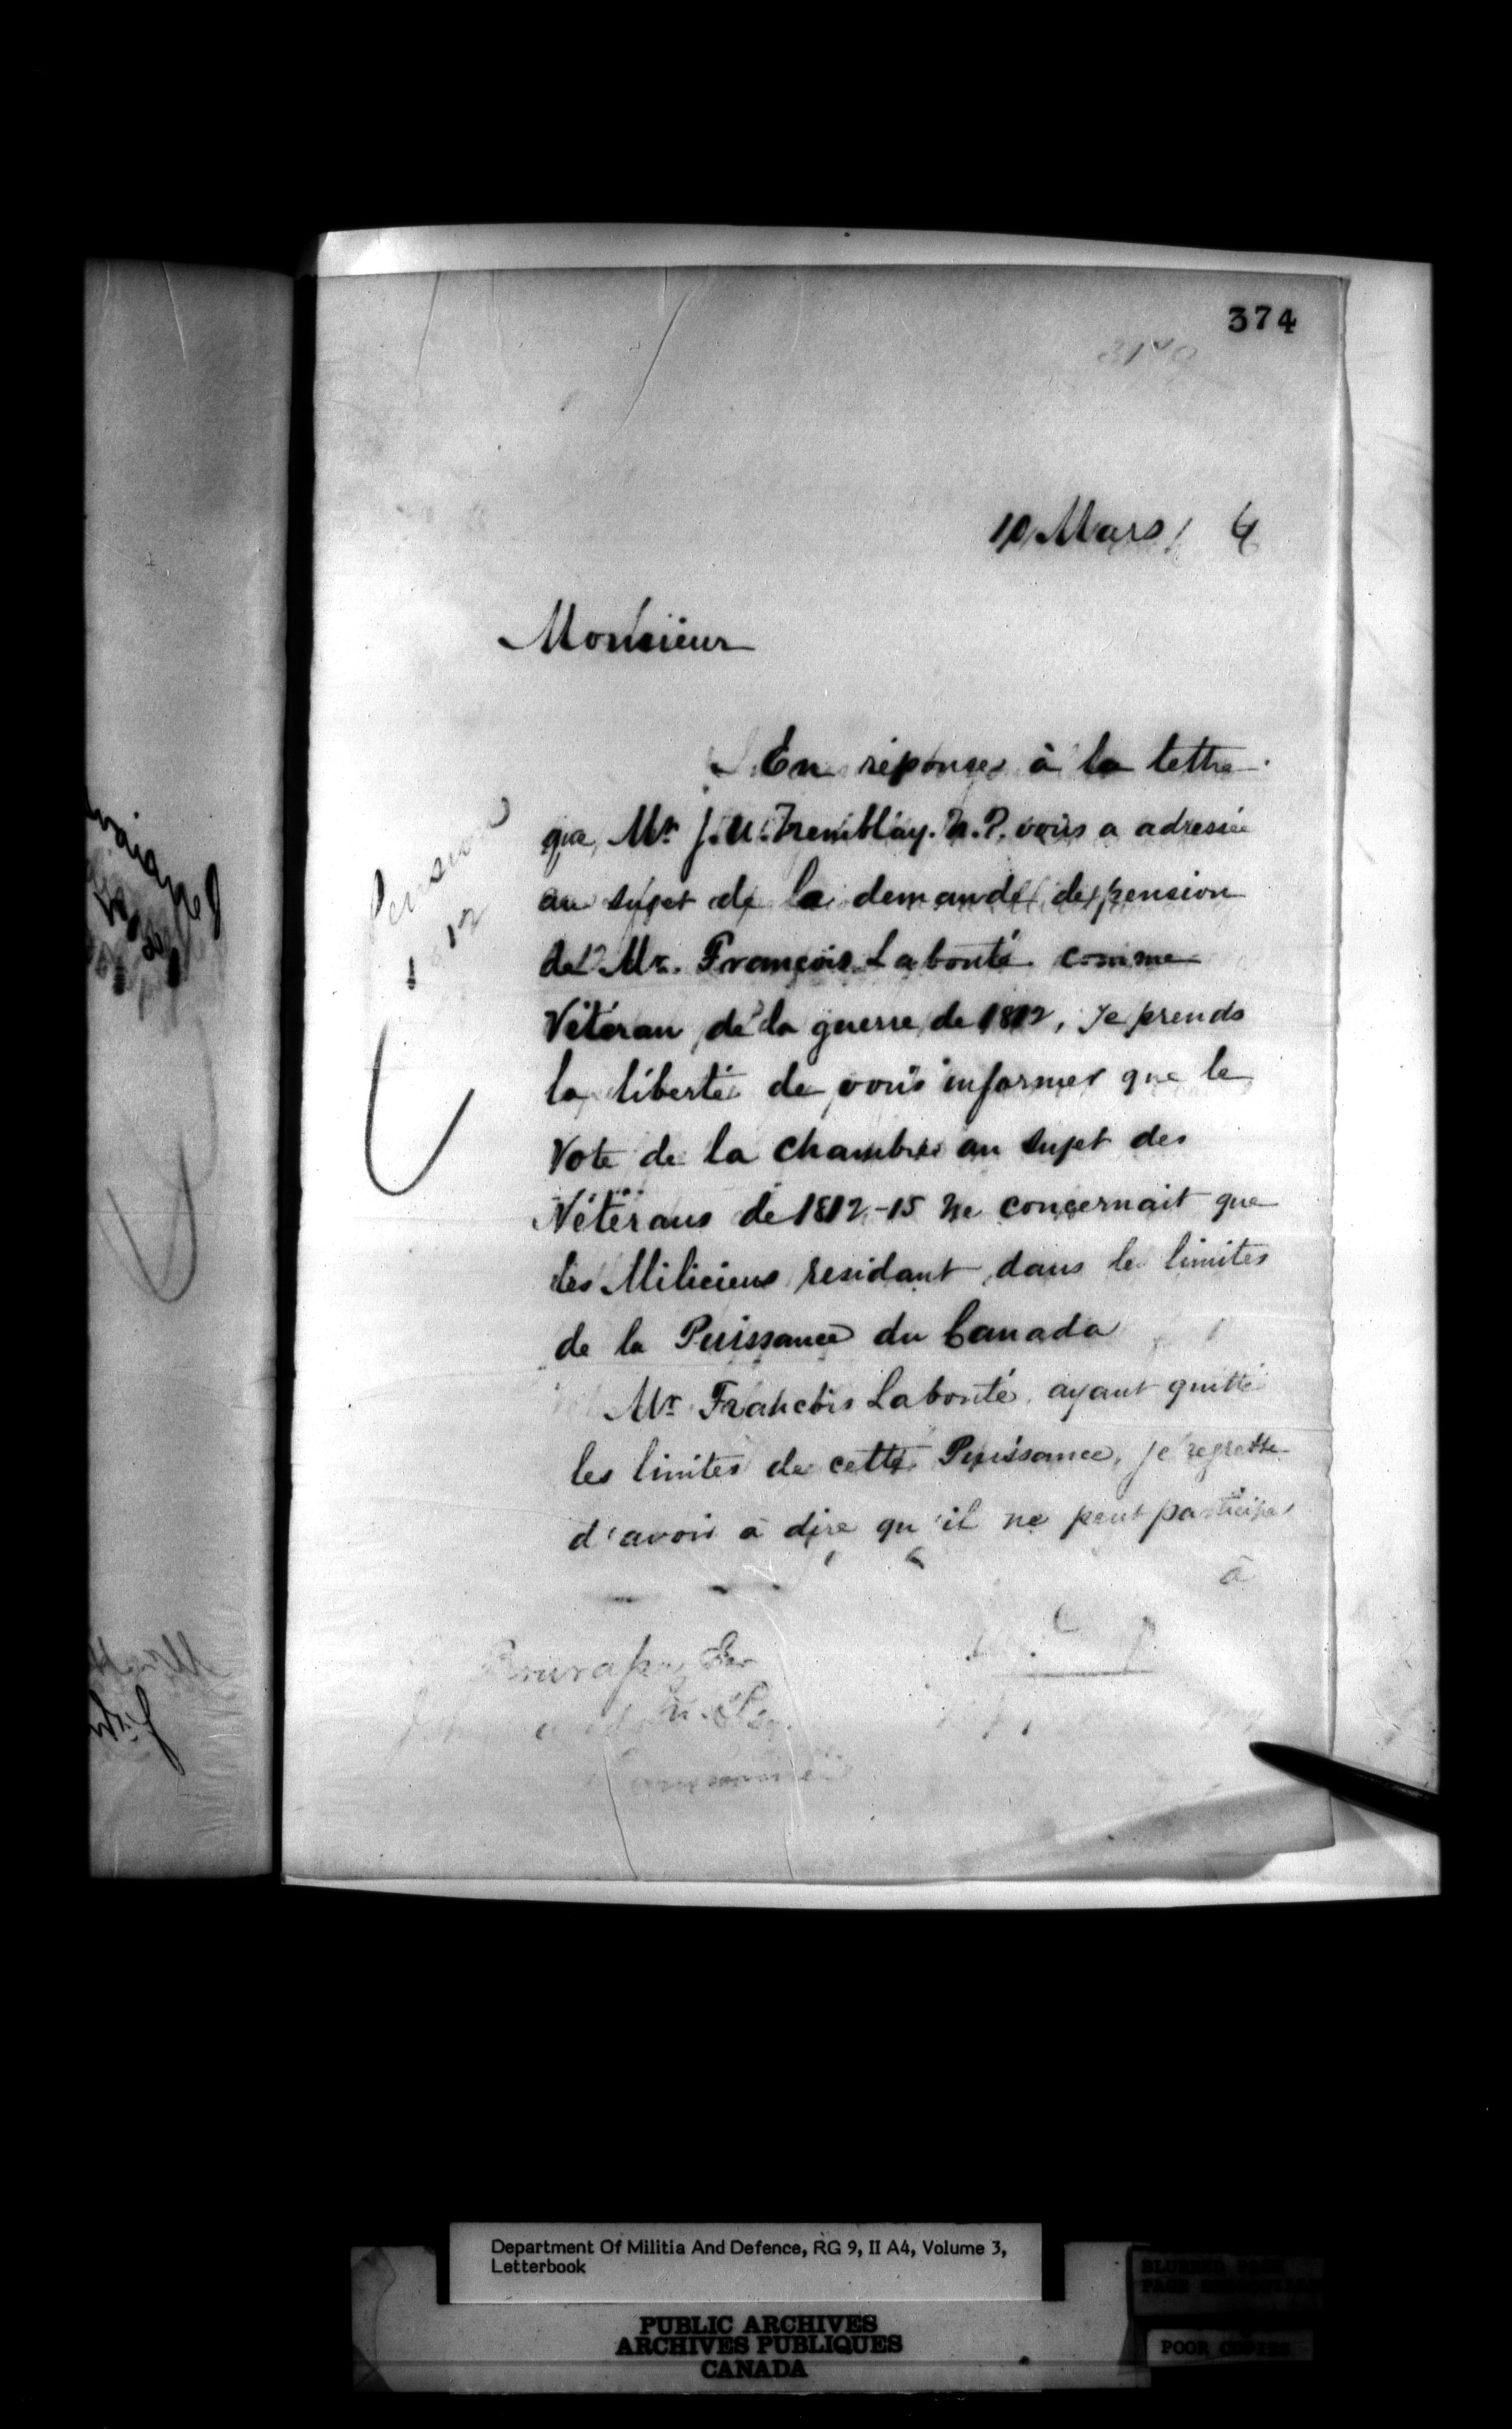 374
10 Mars 6
Monsieur
En réponse à la lettre
que Mr. J. U. Tremblay. N. P. vous a adressée
au sujet de la demande de pension
de Mr. François Labonté comme
Vétéran de la guerre de 1812, Je prends
la liberté de vous informer que le
Vote de la Chambre au sujet des
Vétérans de 1812-15 ne concernait que
les Miliciens residant dans les limites
de la Puissance du Canada
Mr François Labonté ayant quitté
les limites de cette Puissance, je regrette
d'avoir à dire qu'il ne peut participer
à
Pension
1812
Department Of Militia And Defence, RG 9, II A4, Volume 3,
Letterbook
PUBLIC ARCHIVES
ARCHIVES PUBLIQUES
CANADA
BLURRED PAGE
POOR COPIES